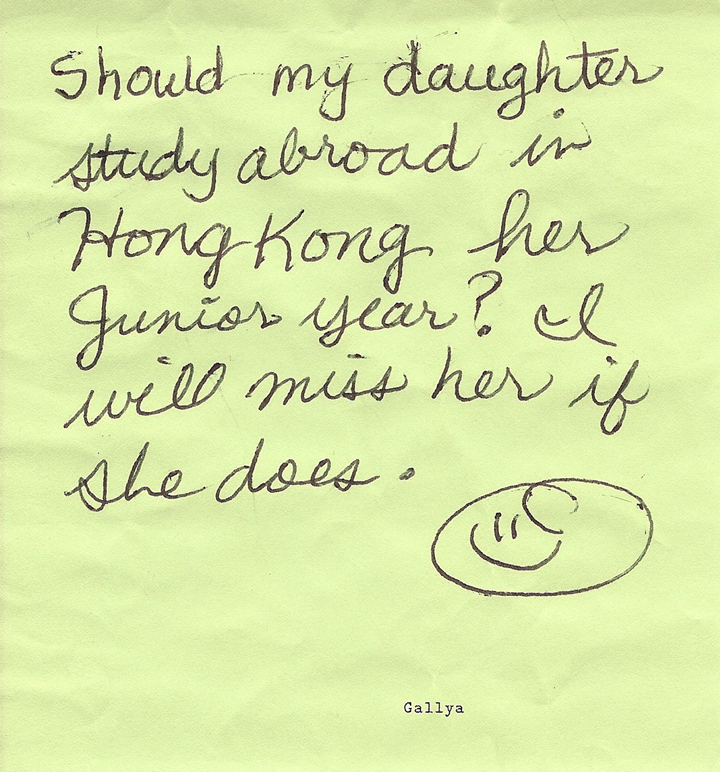 Should my daughter
study abroad in
Hong Kong her
Junior year? I
will miss her if
she does.
Gallya